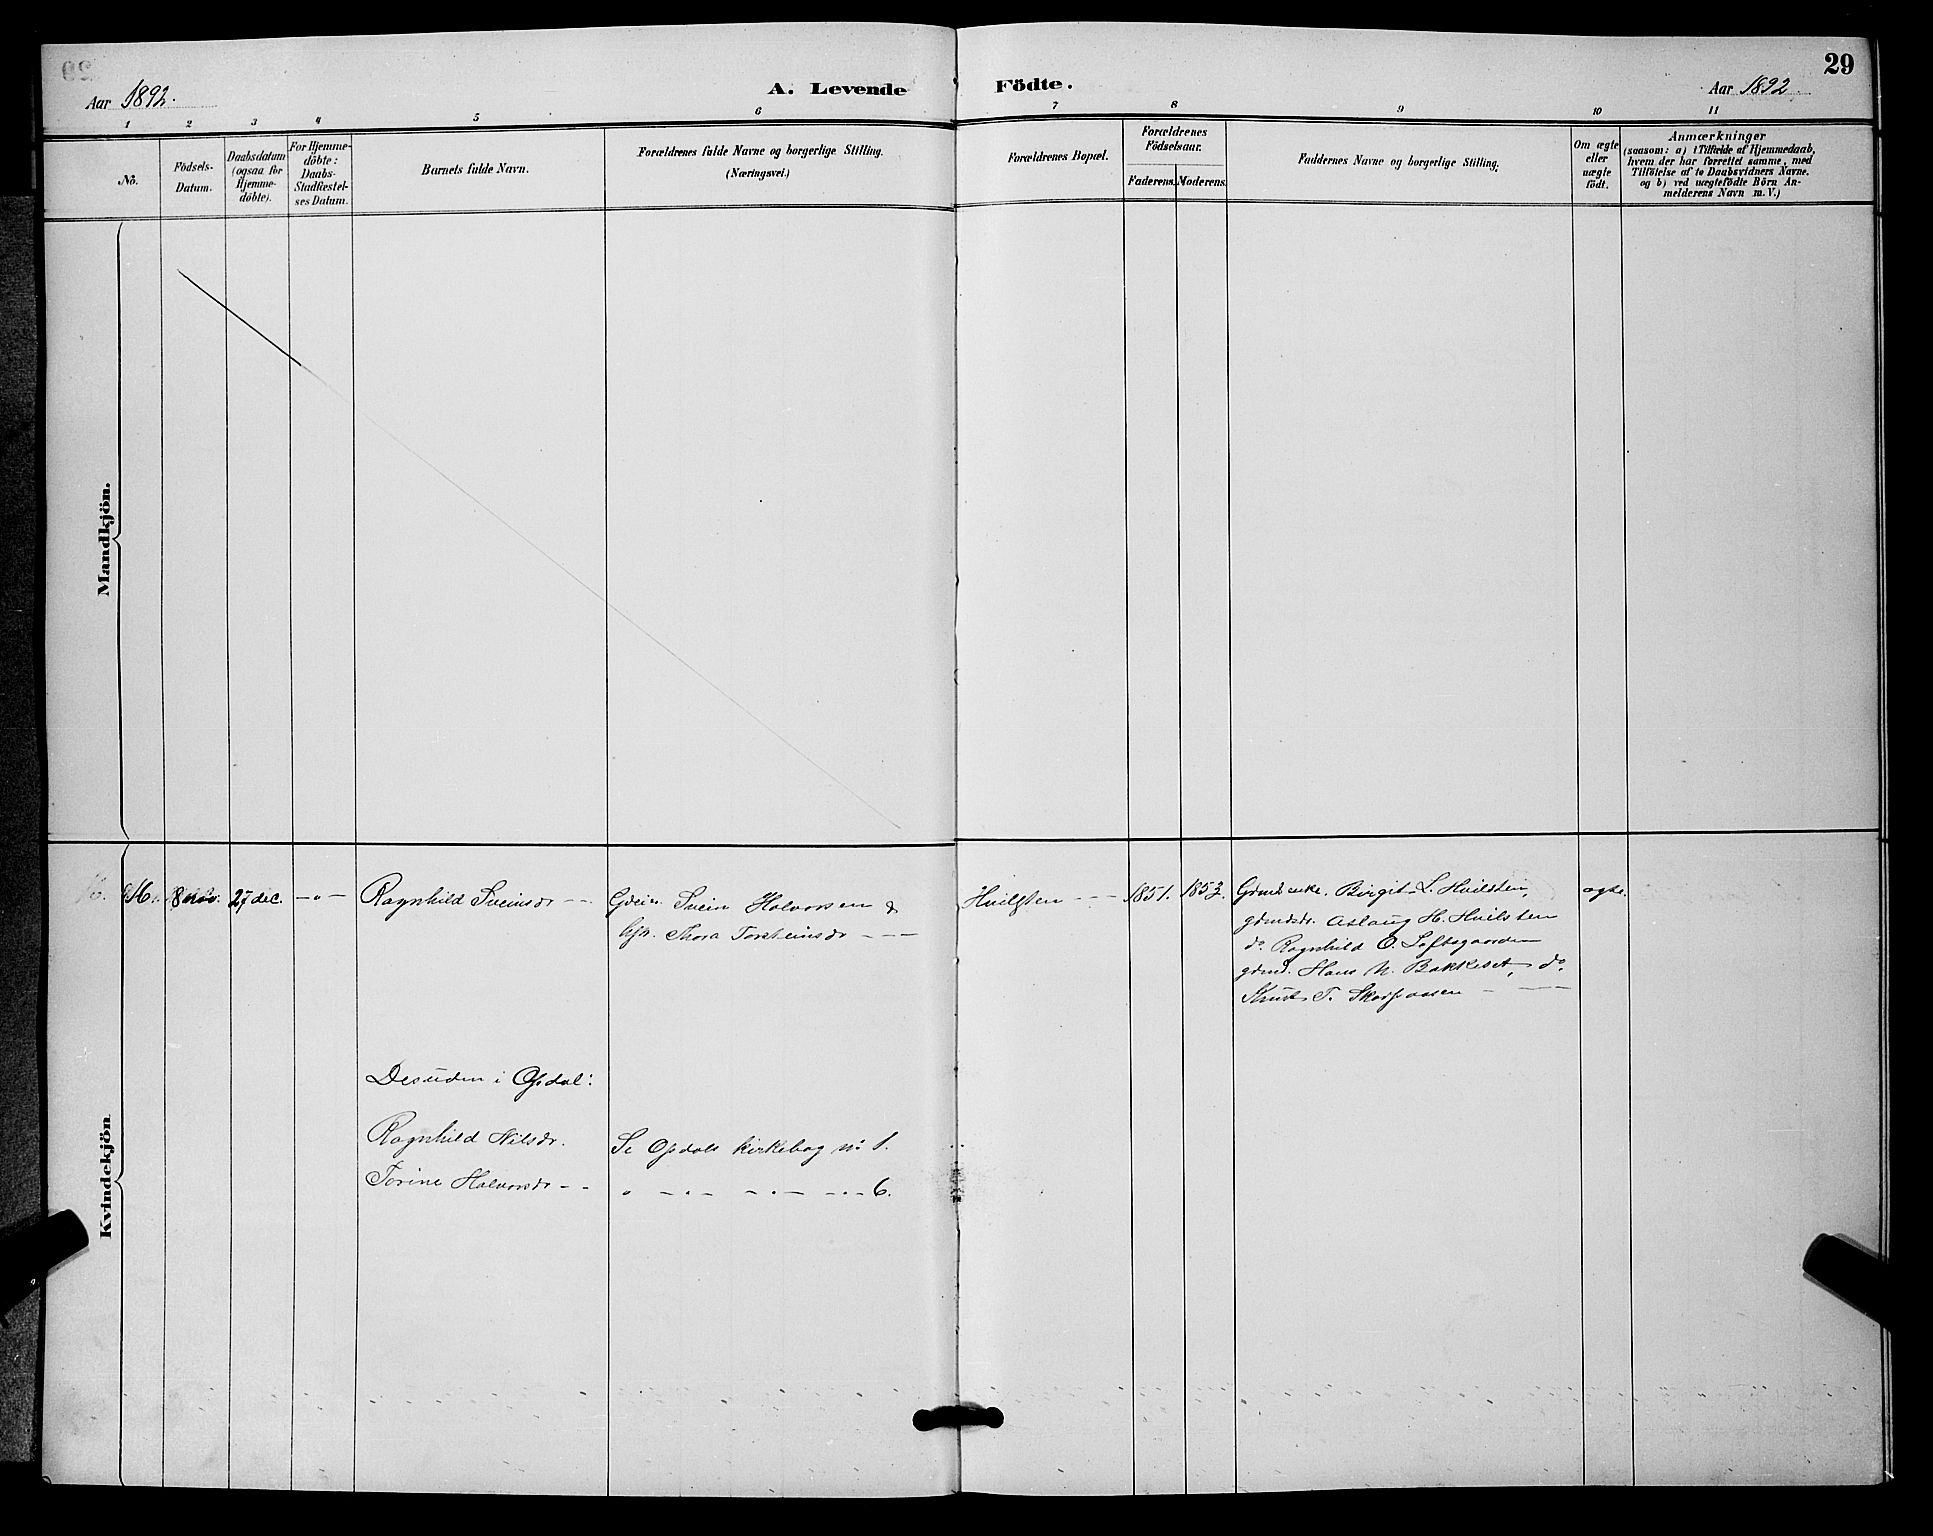 Aar 1892.
A. Levende Födte.
Aar 1892.
29
1 2 3 4 5 6 7 8 9 10 11
No.
Födsels-
Datum.
Daabsdatum
(ogsaa för
Hjemme-
döbte).
For Hjemme-
döbte:
Daabs-
Stadfæstel-
ses Datum.
Barnets fulde Navn.
Forældrenes fulde Navne og borgerlige Stilling.
(Næringsvei.)
Forældrenes Bopæl.
Forældrenes
Födselsaar.
Faderens. Moderens.
Faddernes Navne og borgerlige Stilling.
Om ægte
eller
uægte
födt.
Anmærkninger
(saasom: a) i Tilfælde af Hjemmedaab,
hvem der har forrettet samme, med
Tilföielse af to Daabsvidners Navne.
og b) ved uægtefödte Börn An-
melderens Navn m. V.)
Mandkjön.
Kvindekjön
16. 8 nov. 27 dec. -"- Ragnhild Sveinsdr -- Svein Halvorsen &
Thora Torsteinsdr ---
Hvilsten --- 1851. 1853.
Gdmds enke. Birgit L. Hvilsten,
gdmdsdr. Aslaug H. Hvilsten
do Ragnhild O.
gdmd. Hans N. Bakkeset, do.
Knut T. Skarpaasen - --
ægte.
Desuden i Opdal:
Ragnhild Nilsdr. Se Opdals kirkebog no 1.
Torine Halvorsdr -- " -"- -"- -"- 6.